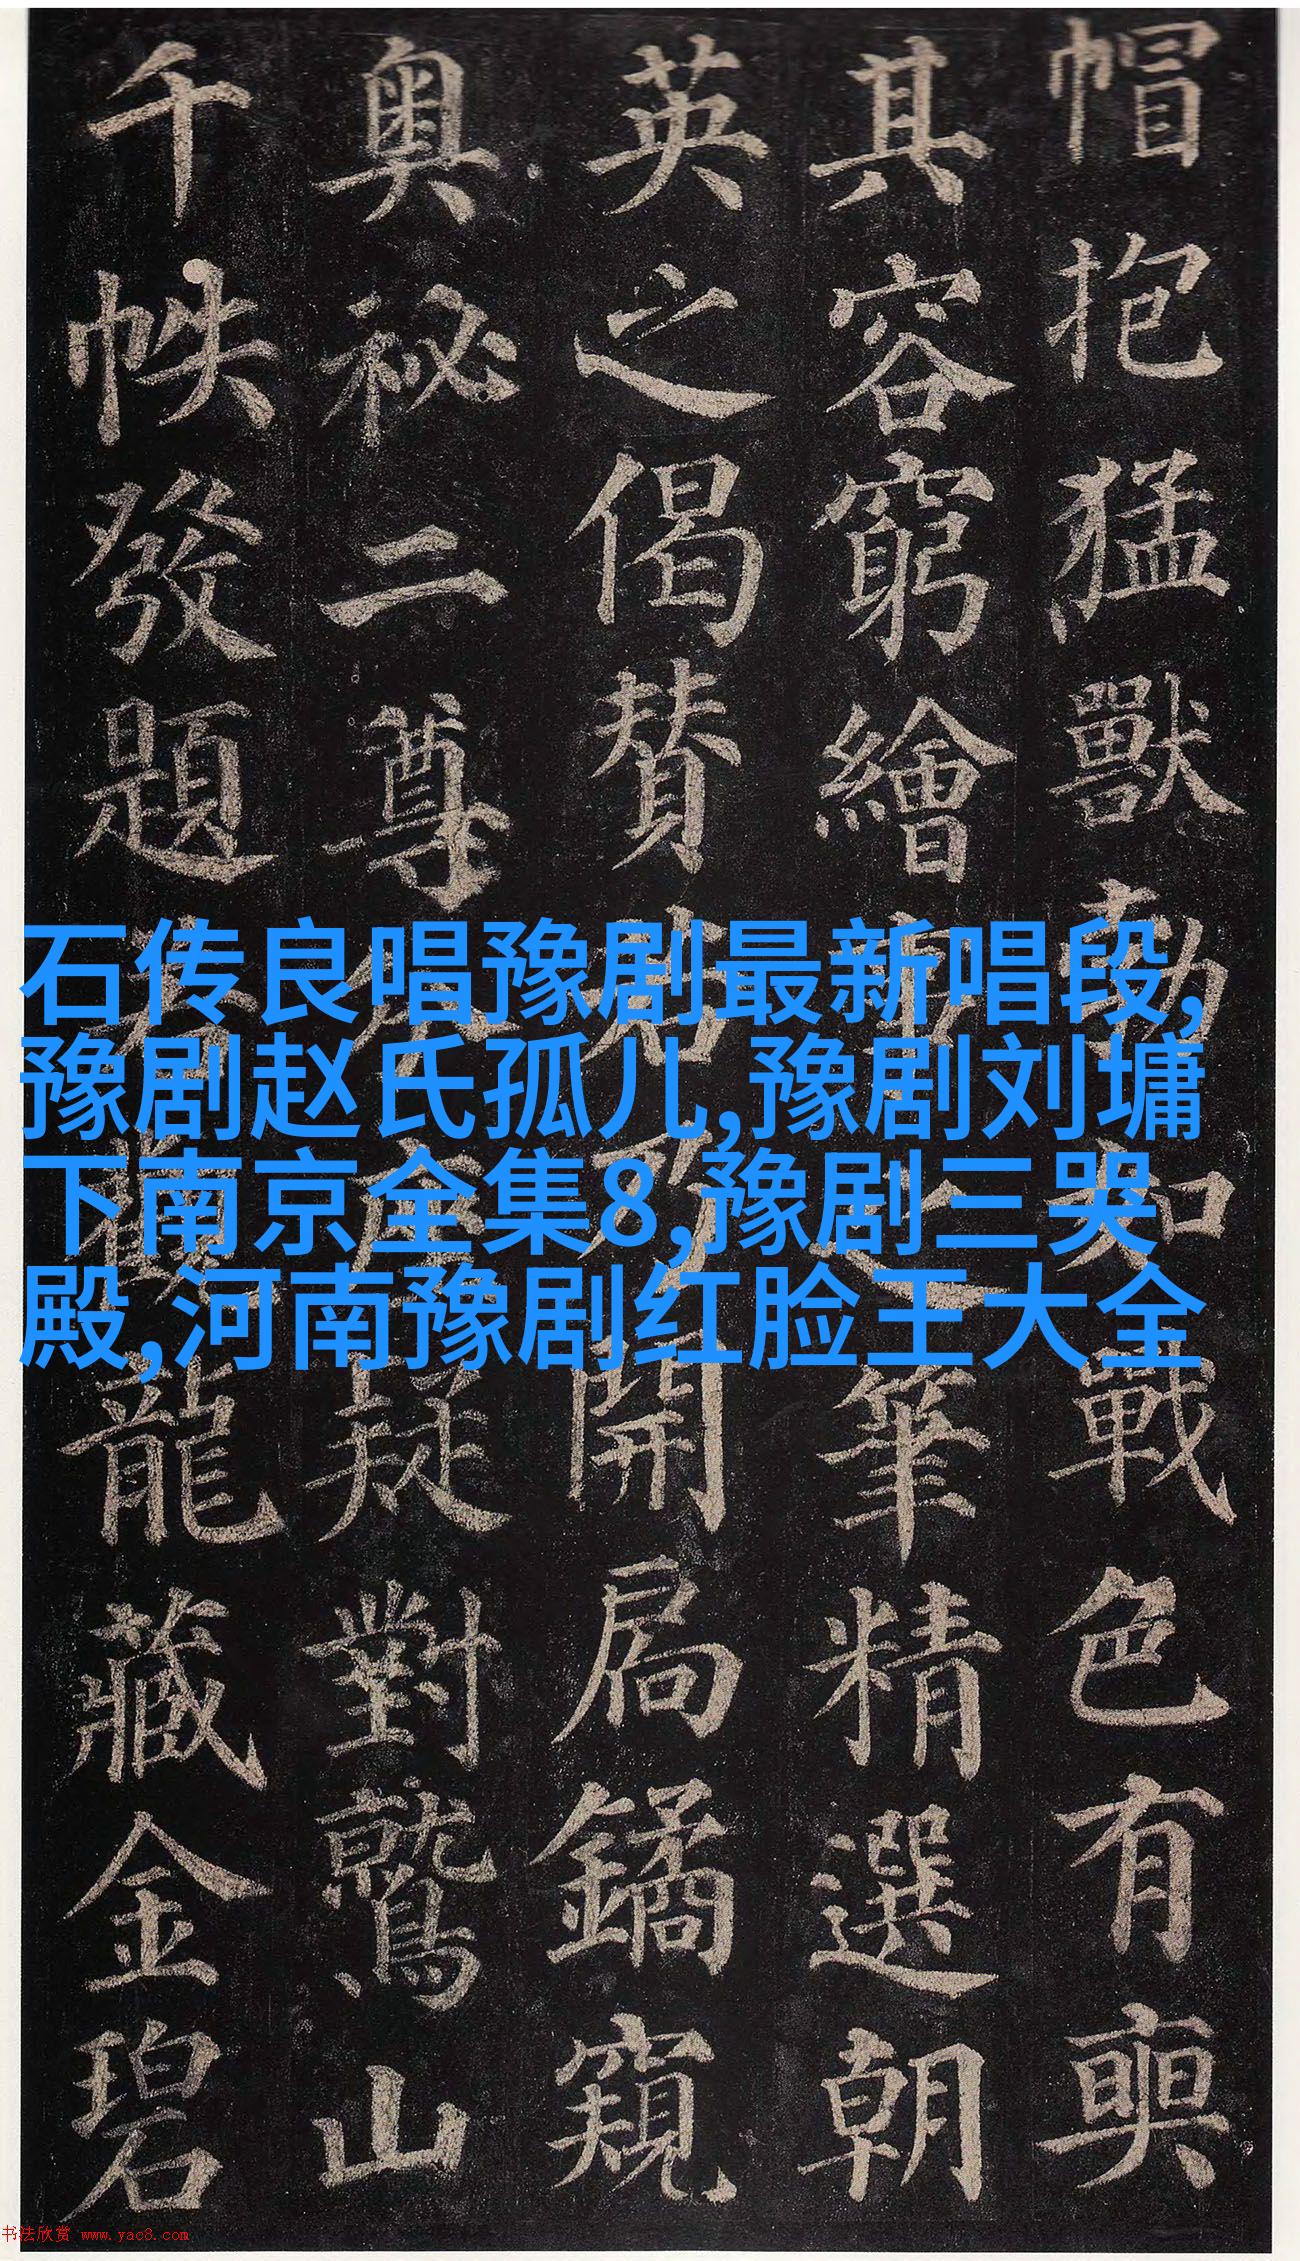 帽抱猛獸勃如戰色有奭
其容窮繪事之筆精選朝
英之偈贊若乃開扃鐍窺
奧祕二尊分座疑對鷲山
千帙發題若觀龍藏金碧
石传良唱豫剧最新唱段,
豫剧赵氏孤儿,豫剧刘墉
下南京全集8,豫剧三哭
殿,河南豫剧红脸王大全
书法欣赏 www.yac8.com